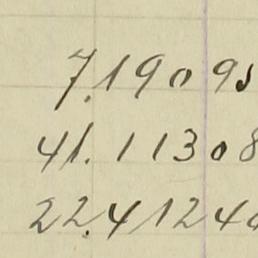 7.1909
41.11308
22.4124